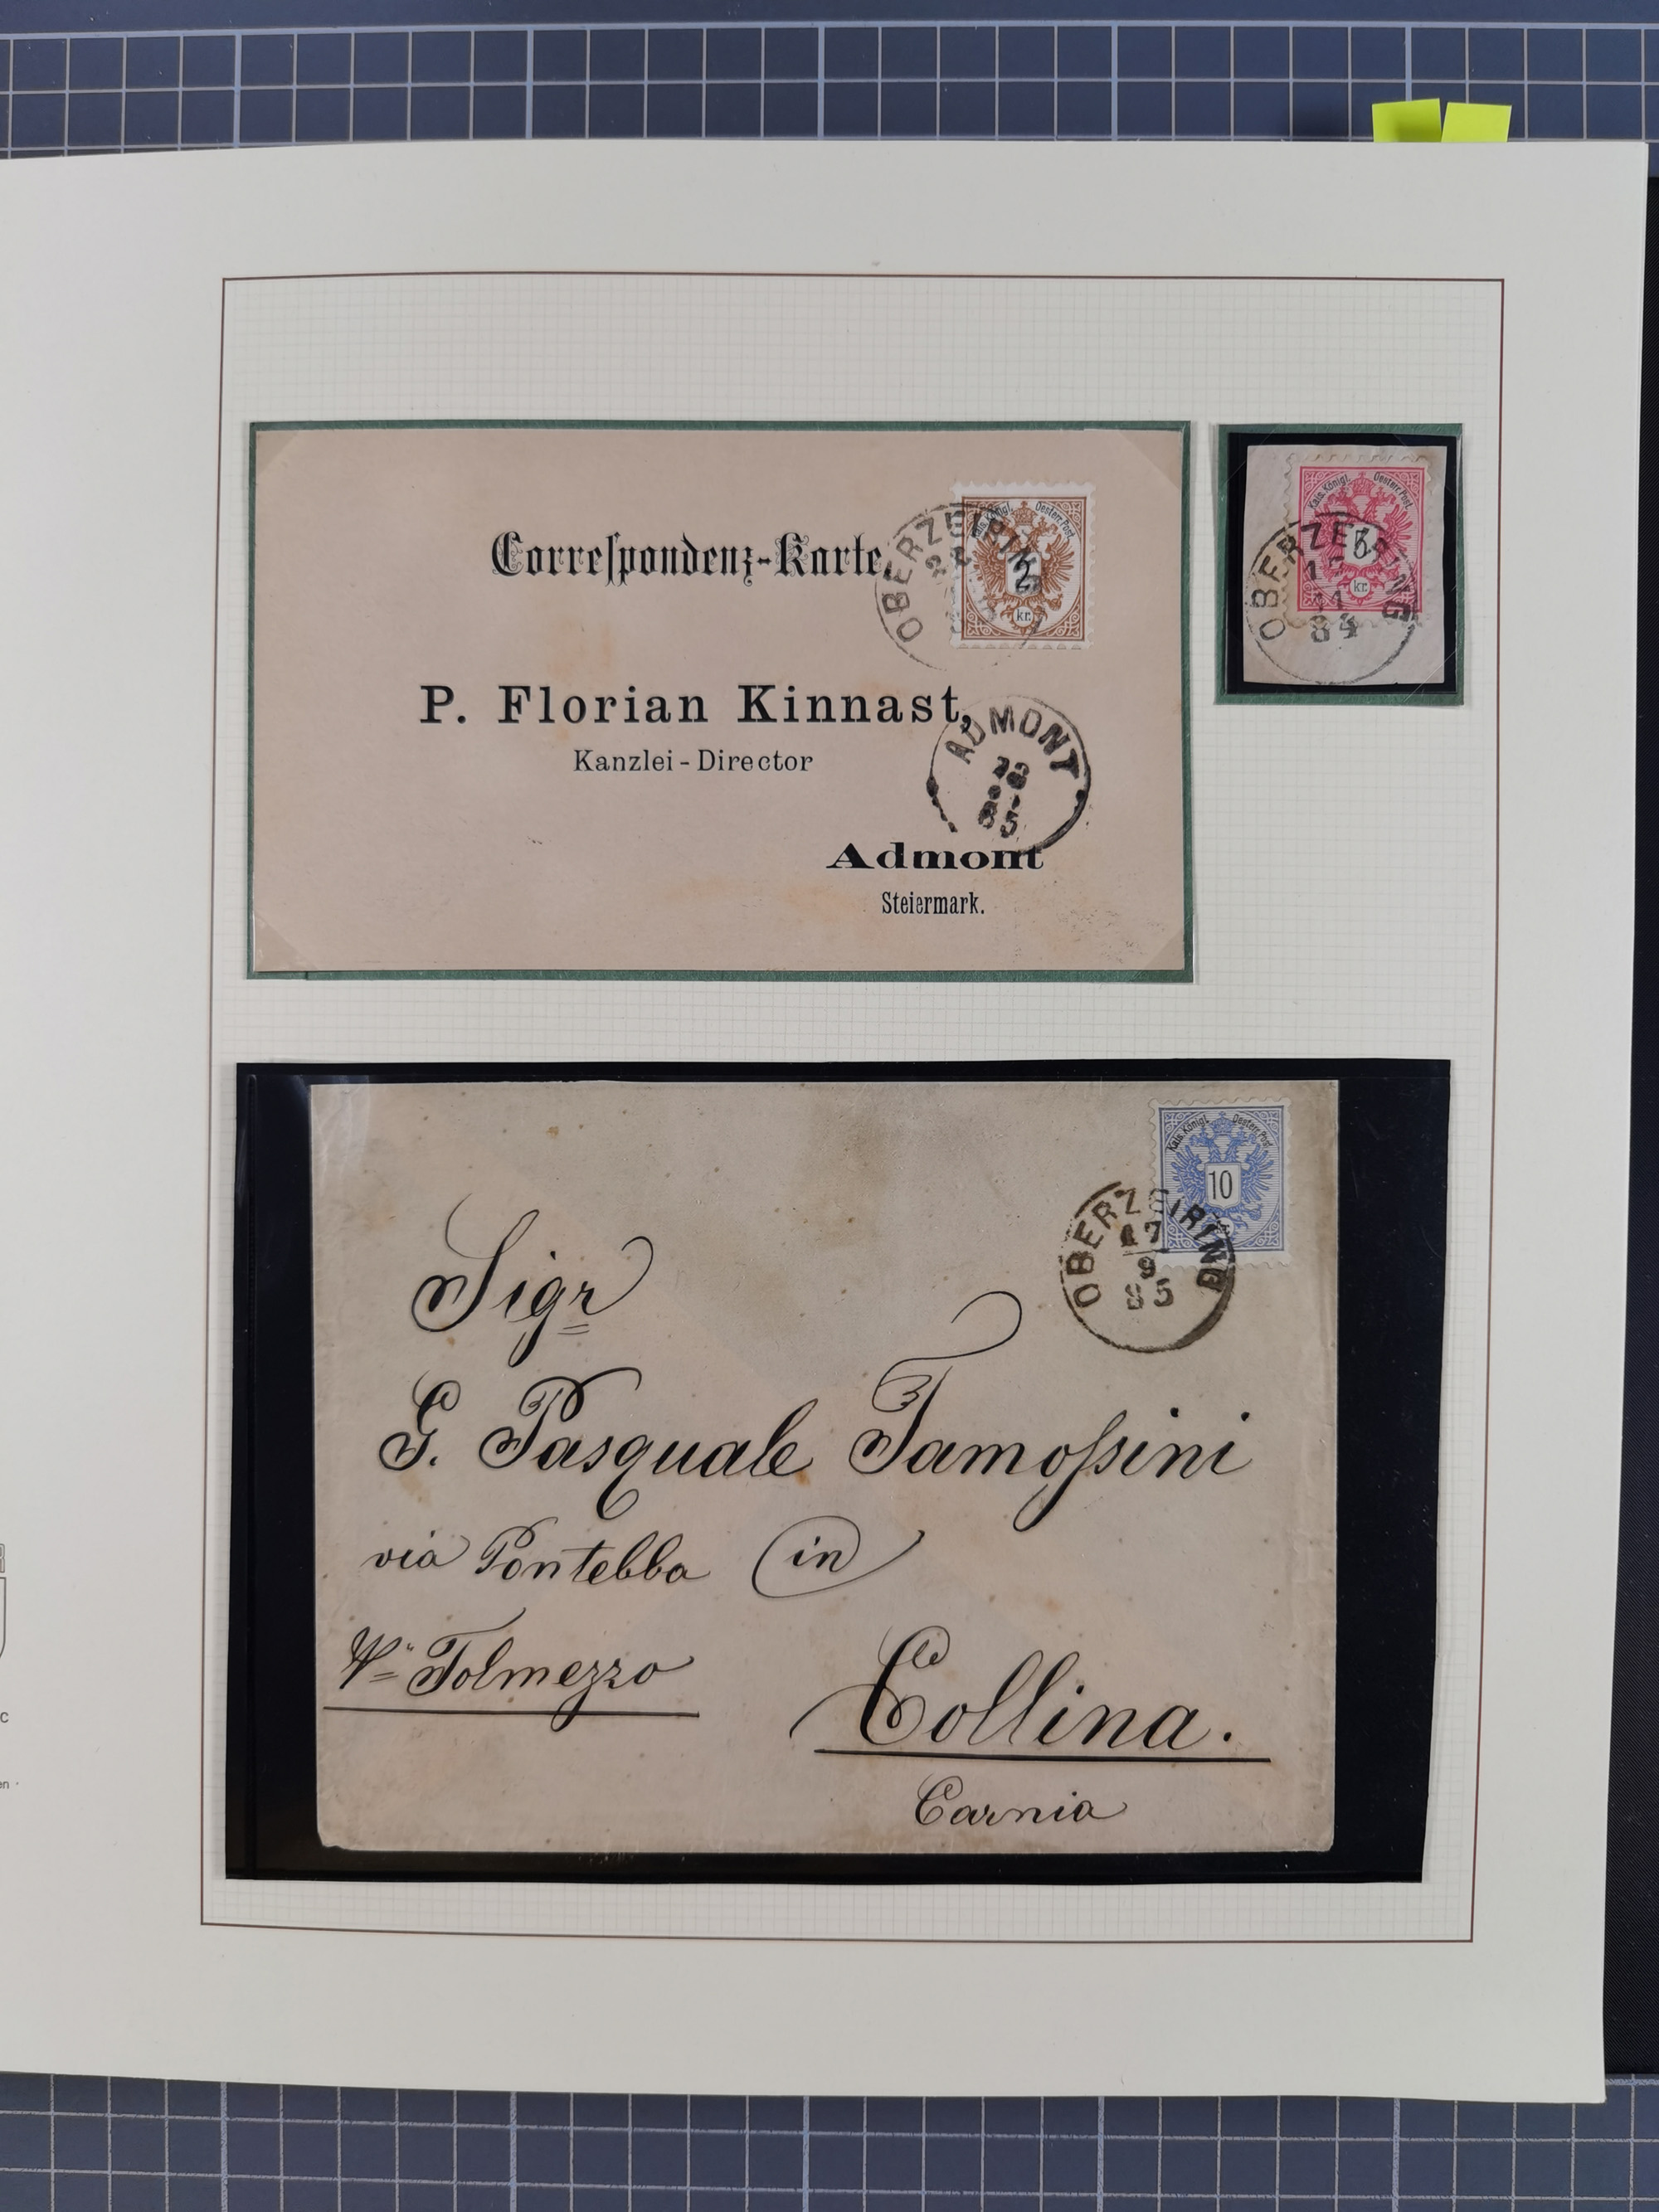 Correspondenz-Karte.
OBERZEIRING
Kais. Königl. Oesterr. Post.
2
kr.
P. Florian Kinnast,
Kanzlei-Director
ADMONT
85
Admont
Steiermark.
Kais. Königl. Oesterr. Post.
5
kr.
OBERZEIRING
11
84
Kais. Königl. Oesterr. Post.
10
OBERZEIRING
17
9
85
Sigr
G. Pasquale Tamossini
via Pontebba in
Tolmezzo
Collina.
Carnia
R
c
en